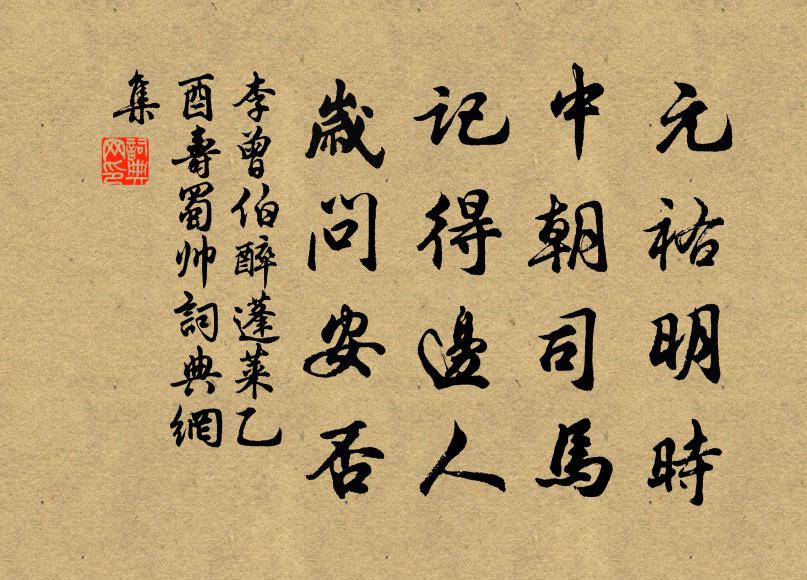 元祐明時
中朝司馬
記得邊人
歲問安否
李曾伯醉蓬萊乙
酉壽蜀帅詞典網
集
詞典
网印